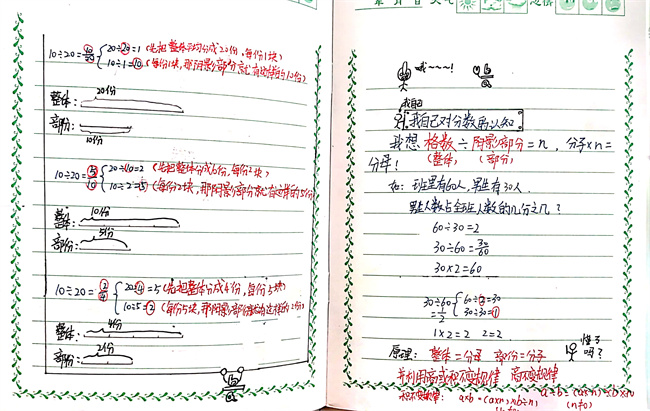 10÷20=10/20 { 20÷20=1 (先把整体平均分成20份,每份1块)
10÷1=10 (每份1块,那阴影部分就有这样的10份)
20份
整体:
部份:
10份
10÷20=5/10 { 20÷10=2 (先把整体分成10份,每份2块)
10÷2=5 (每份2块,那阴影部分就有这样的5份)
10份
整体:
5份
部份:
10÷20=2/4 { 20÷4=5 (先把整体分成4份,每份5块)
10÷5=2 (每份5块,那阴影部份就有这样的2份)
4份
整体:
2份
部份:
b/a
天气 心情
哦~~~! b/a
我自己
我自己对分数的认知
我想格数÷阴影部分=n,分子×n=
分母! (整体) (部分)
如:班里有60人,男生有30人,
男生人数占全班人数的几分之几?
60÷30=2
30÷60=30/60
30×2=60
30÷60 { 60÷2=30
=1/2 30÷30=1
1×2=2 2=2
懂了
吗?
原理: 整体=分母 部份=分子
并利用商或积不变规律 商不变规律
积不变规律: a×b=(a×n)×(b÷n) a÷b=(a×n)÷(b×n)
(n≠0)